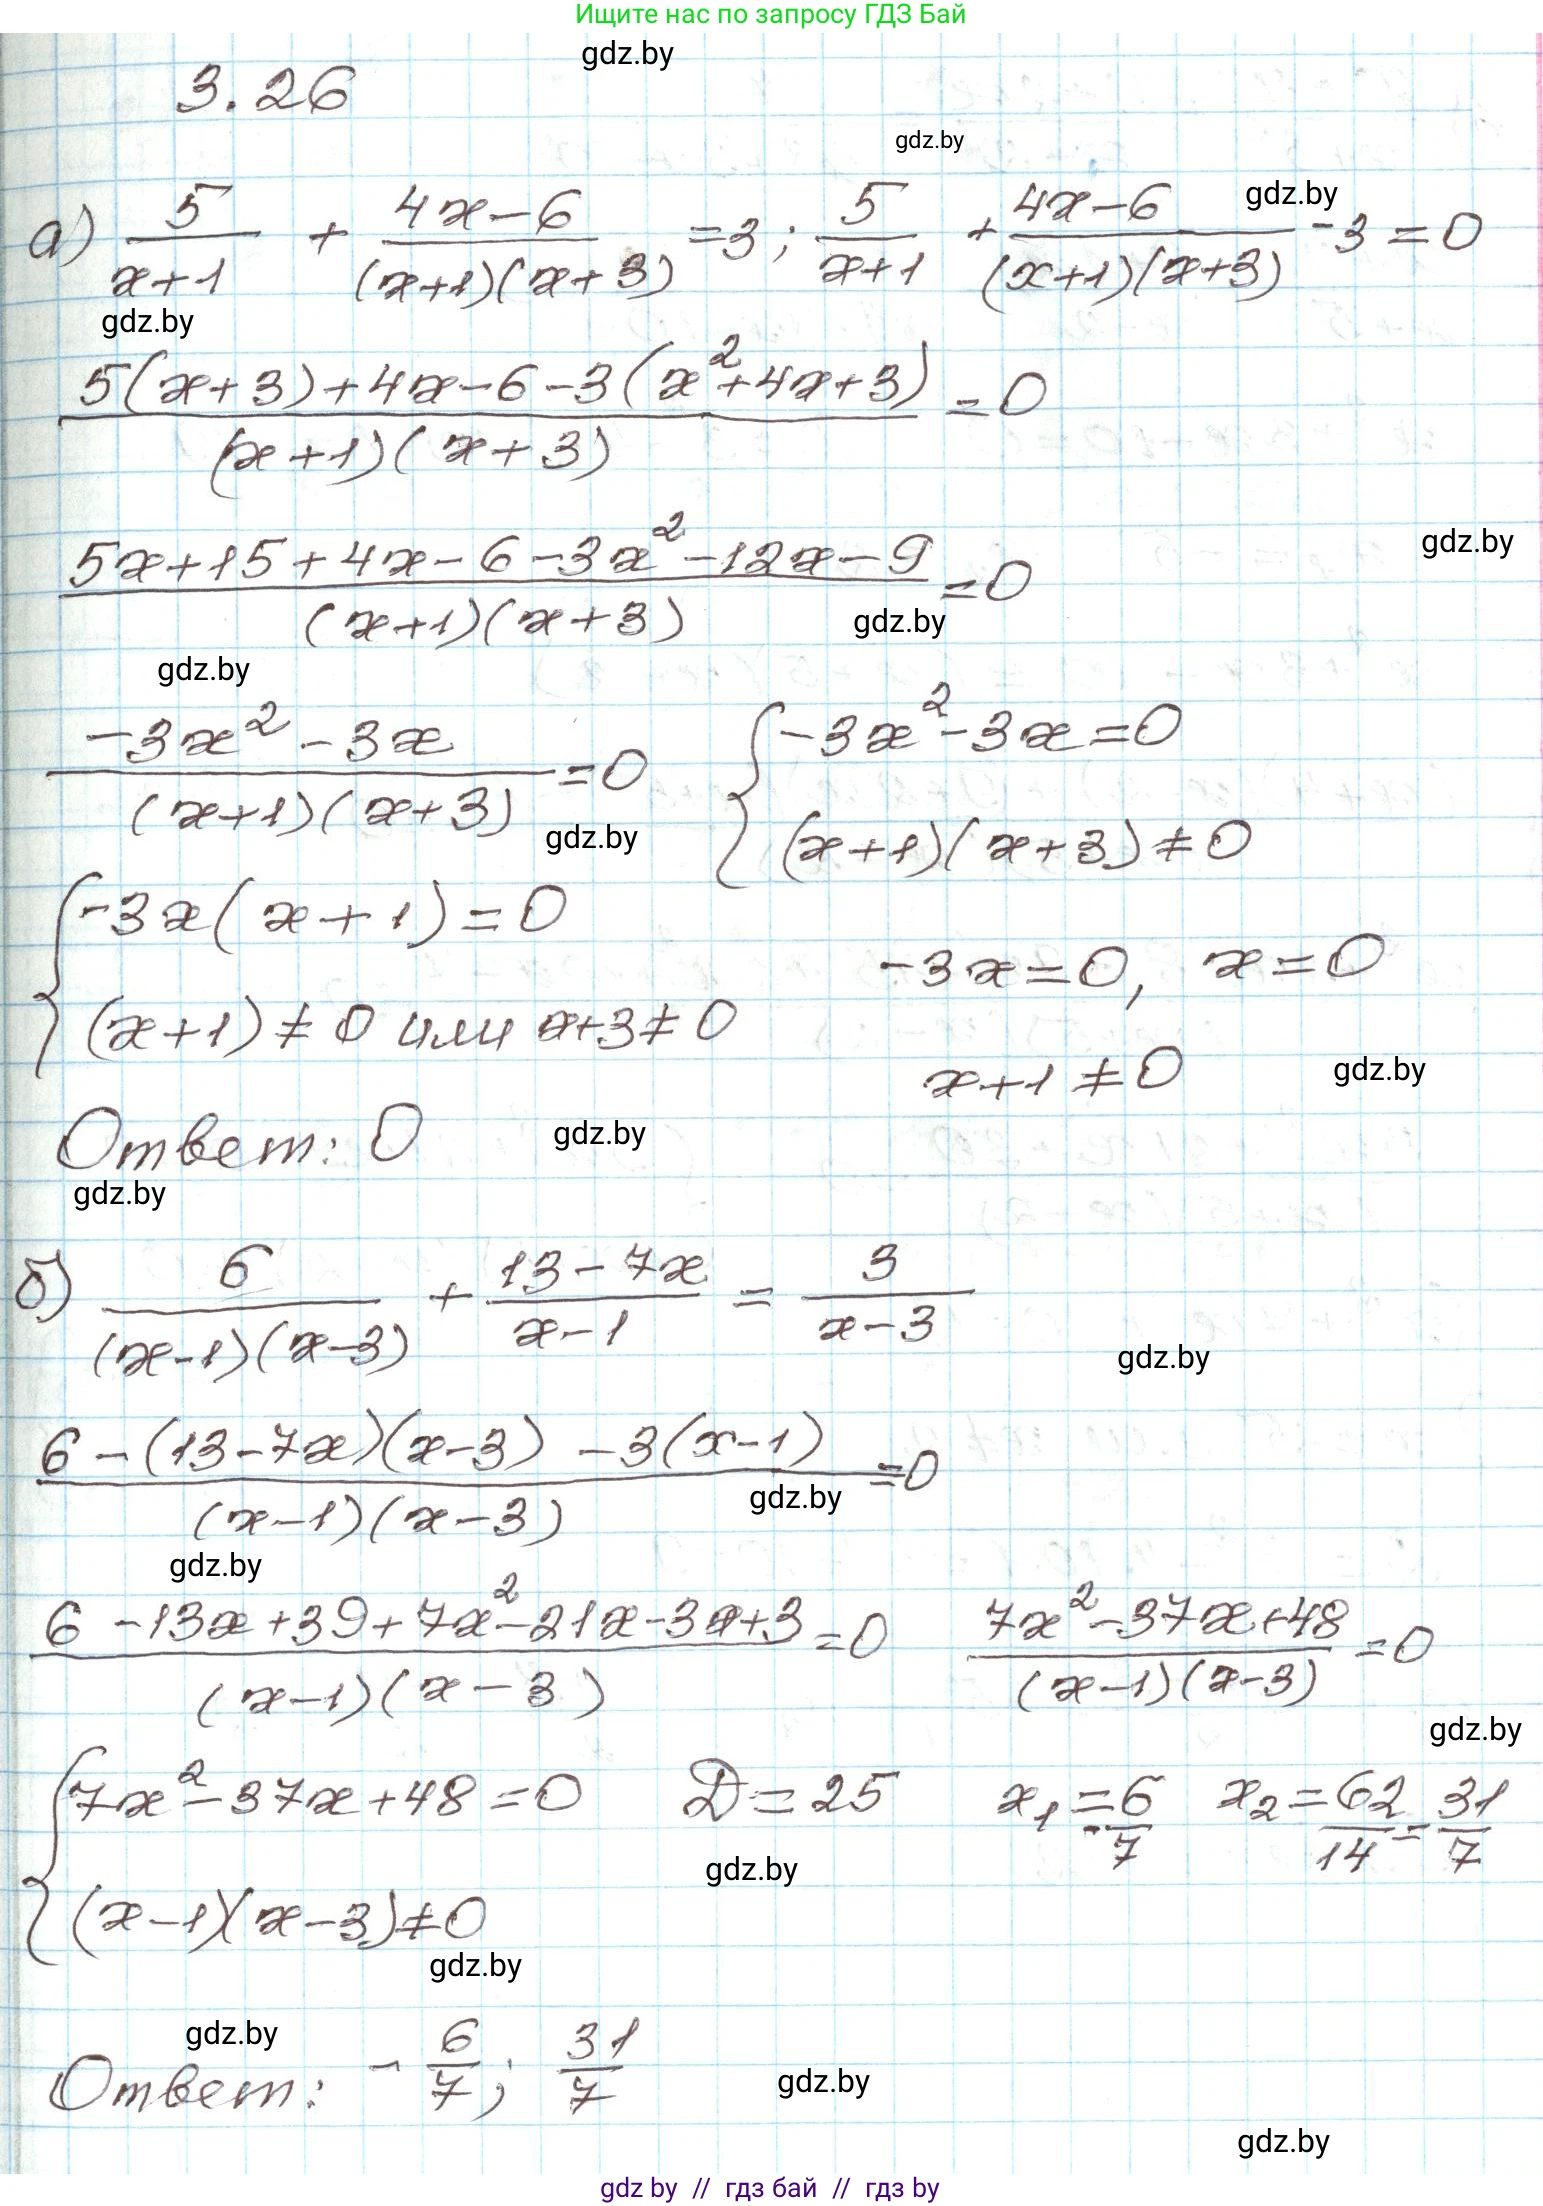 Ищите нас по запросу ГДЗ Бай
gdz.by
3.26
gdz.by
gdz.by
а) 5/(x+1) + (4x-6)/((x+1)(x+3)) =3; 5/(x+1) + (4x-6)/((x+1)(x+3)) -3=0
gdz.by
(5(x+3)+4x-6-3(x²+4x+3))/((x+1)(x+3)) =0
gdz.by
(5x+15+4x-6-3x²-12x-9)/((x+1)(x+3)) =0
gdz.by
gdz.by
(-3x²-3x)/((x+1)(x+3)) =0 { -3x²-3x=0
(x+1)(x+3)≠0
gdz.by
{ -3x(x+1)=0
-3x=0, x=0
(x+1)≠0 или x+3≠0
x+1≠0
gdz.by
Ответ: 0
gdz.by
gdz.by
б) 6/((x-1)(x-3)) + (13-7x)/(x-1) = 3/(x-3)
gdz.by
(6-(13-7x)(x-3) -3(x-1))/((x-1)(x-3)) =0
gdz.by
gdz.by
(6-13x+39+7x²-21x-3x+3)/((x-1)(x-3)) =0 (7x²-37x+48)/((x-1)(x-3)) =0
gdz.by
{ 7x²-37x+48=0 D=25 x₁=-6/7 x₂=62/14=31/7
gdz.by
(x-1)(x-3)≠0
gdz.by
gdz.by
Ответ: -6/7; 31/7
gdz.by
gdz.by
gdz by // гдз бай // гдз by